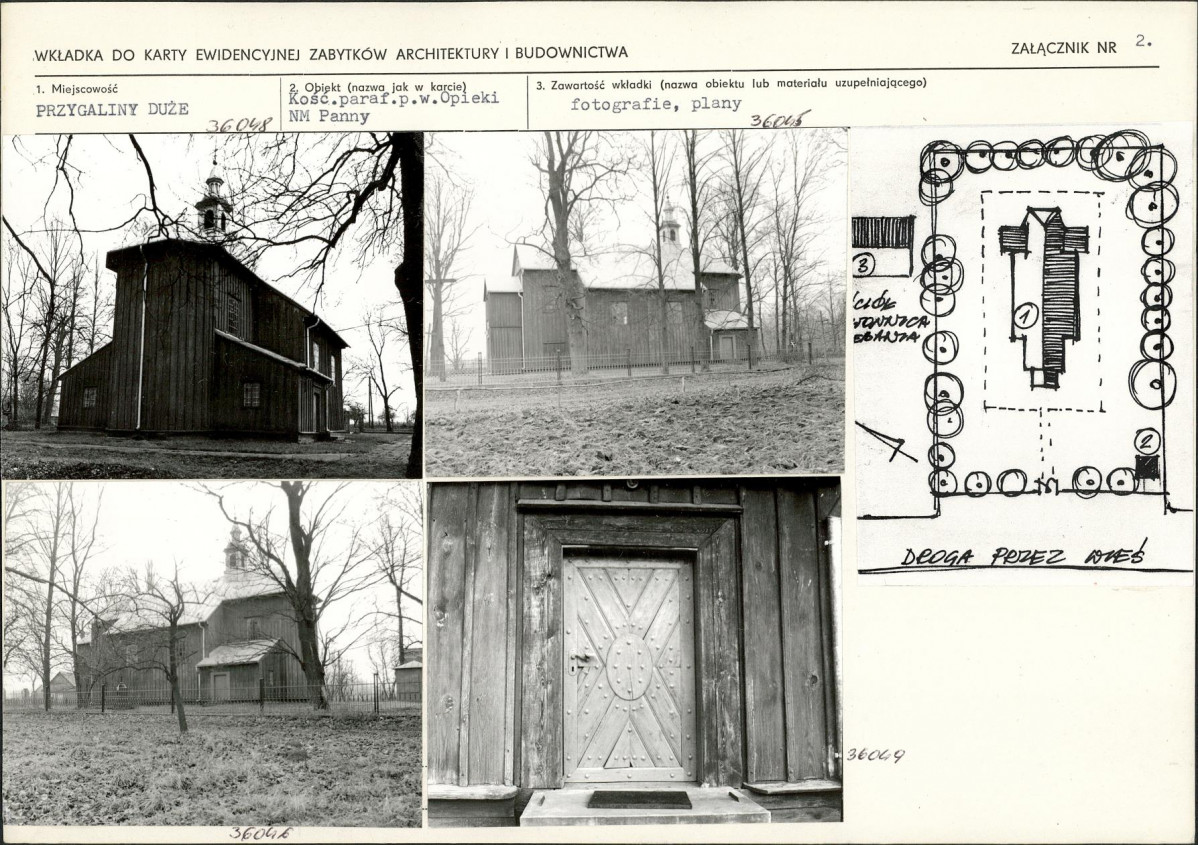 WKŁADKA DO KARTY EWIDENCYJNEJ ZABYTKÓW ARCHITEKTURY I BUDOWNICTWA
ZAŁĄCZNIK NR 2.
1. Miejscowość
PRZYGALINY DUŻE
2. Obiekt (nazwa jak w karcie)
Kość.paraf.p.w.Opieki
NM Panny
3. Zawartość wkładki (nazwa obiektu lub materiału uzupełniającego)
fotografie, plany
36048
3
1
2
DROGA PRZEZ WIEŚ
36049